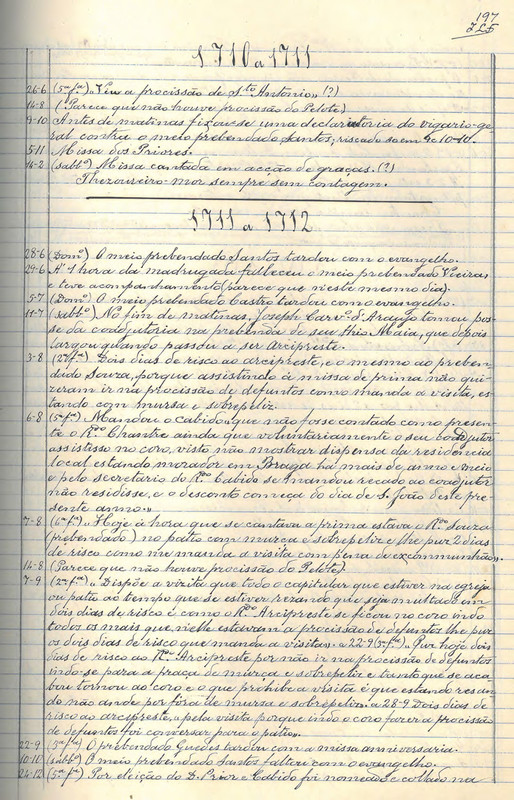 197
1710 a 1711
26-6 (5ª fª) "Viu a procissão de Sto Antonio" (?)
14-8 (Parece que não houve procissão do Pelote)
9-10 Antes de matinas fixou-se uma declaratoria do vigario-ge-
ral contra o meio prebendado Santos; riscado so em 9 e 10-10.
5-11 Missa dos Priores.
14-2 (sabbº) Missa cantada em acção de graças. (?)
Thezoureiro-mor sempre sem contagem.
1711 a 1712
28-6 (Domº) O meio prebendado Santos tardou com o evangelho.
29-6 A' 1 hora da madrugada falleceu o meio prebendado Vieira,
e teve acompanhamento (parece que n'este mesmo dia).
5-7 (Domº) O meio prebendado Castro tardou com o evangelho.
11-7 (sabbº) No fim de matinas, Joseph Carvº d'Araujo tomou pos-
se da coadjutoria na prebenda de seu thio Maia, que depois
largou quando passou a ser Arcipreste.
3-8 (2ª fª) Dois dias de risco ao arcipreste, e o mesmo ao preben-
dado Souza, porque assistindo á missa de prima não qui-
zeram ir na procissão de defuntos como manda a visita, es-
tando com mursa e sobrepeliz.
6-8 (5ª fª) Mandou o cabido "que não fosse contado como presen-
te o Rdo Chantre ainda que voluntariamente o seu coadjutor
assistisse no coro, visto não mostrar dispensa da residencia
local estando morador em Braga ha mais de anno e meio
e pelo secretario do Rdo Cabido se mandou recado ao coadjutor
não residisse, e o desconto começa do dia de S. João deste pre-
sente anno".
7-8 (6ª fª) "Hoje á hora que se cantava a prima estava o Rdo Souza
(prebendado) no patio com murça e sobrepeliz e lhe puz 2 dias
de risco como me manda a visita com pena de excommunhão".
14-8 (Parece que não houve procissão do Pelote).
7-9 (2ª fª) "Dispõe a vizita que todo o capitular que estiver na egreja
ou patio ao tempo que se estiver rezando que seja multado em
dois dias de risco e como o Rdo Arcipreste se ficou no coro indo
todos os mais que nelle estavam a procissão de defuntos lhe puz
os dois dias de risco que manda a visita" - a 22-9 (3ª fª) "Puz hoje dois
dias de risco ao Rdo Arcipreste por não ir na procissão de defuntos
indo-se para a praça de murça e sobrepeliz e tanto que se aca-
bou tornou ao coro e o que prohibe a visita é que estando resan-
do não ande por fora de mursa e sobrepeliz". a 28-9 Dois dias de
risco ao arcipreste, "pela visita porque indo o coro fazer a procissão
de defuntos foi conversar para o patio".
22-9 (3ª fª) O prebendado Guedes tardou com a missa anniversaria.
10-10 (sabbº) O meio prebendado Santos faltou com o evangelho.
24-12 (5ª fª) Por eleição do D. Prior e Cabido foi nomeado e collado na